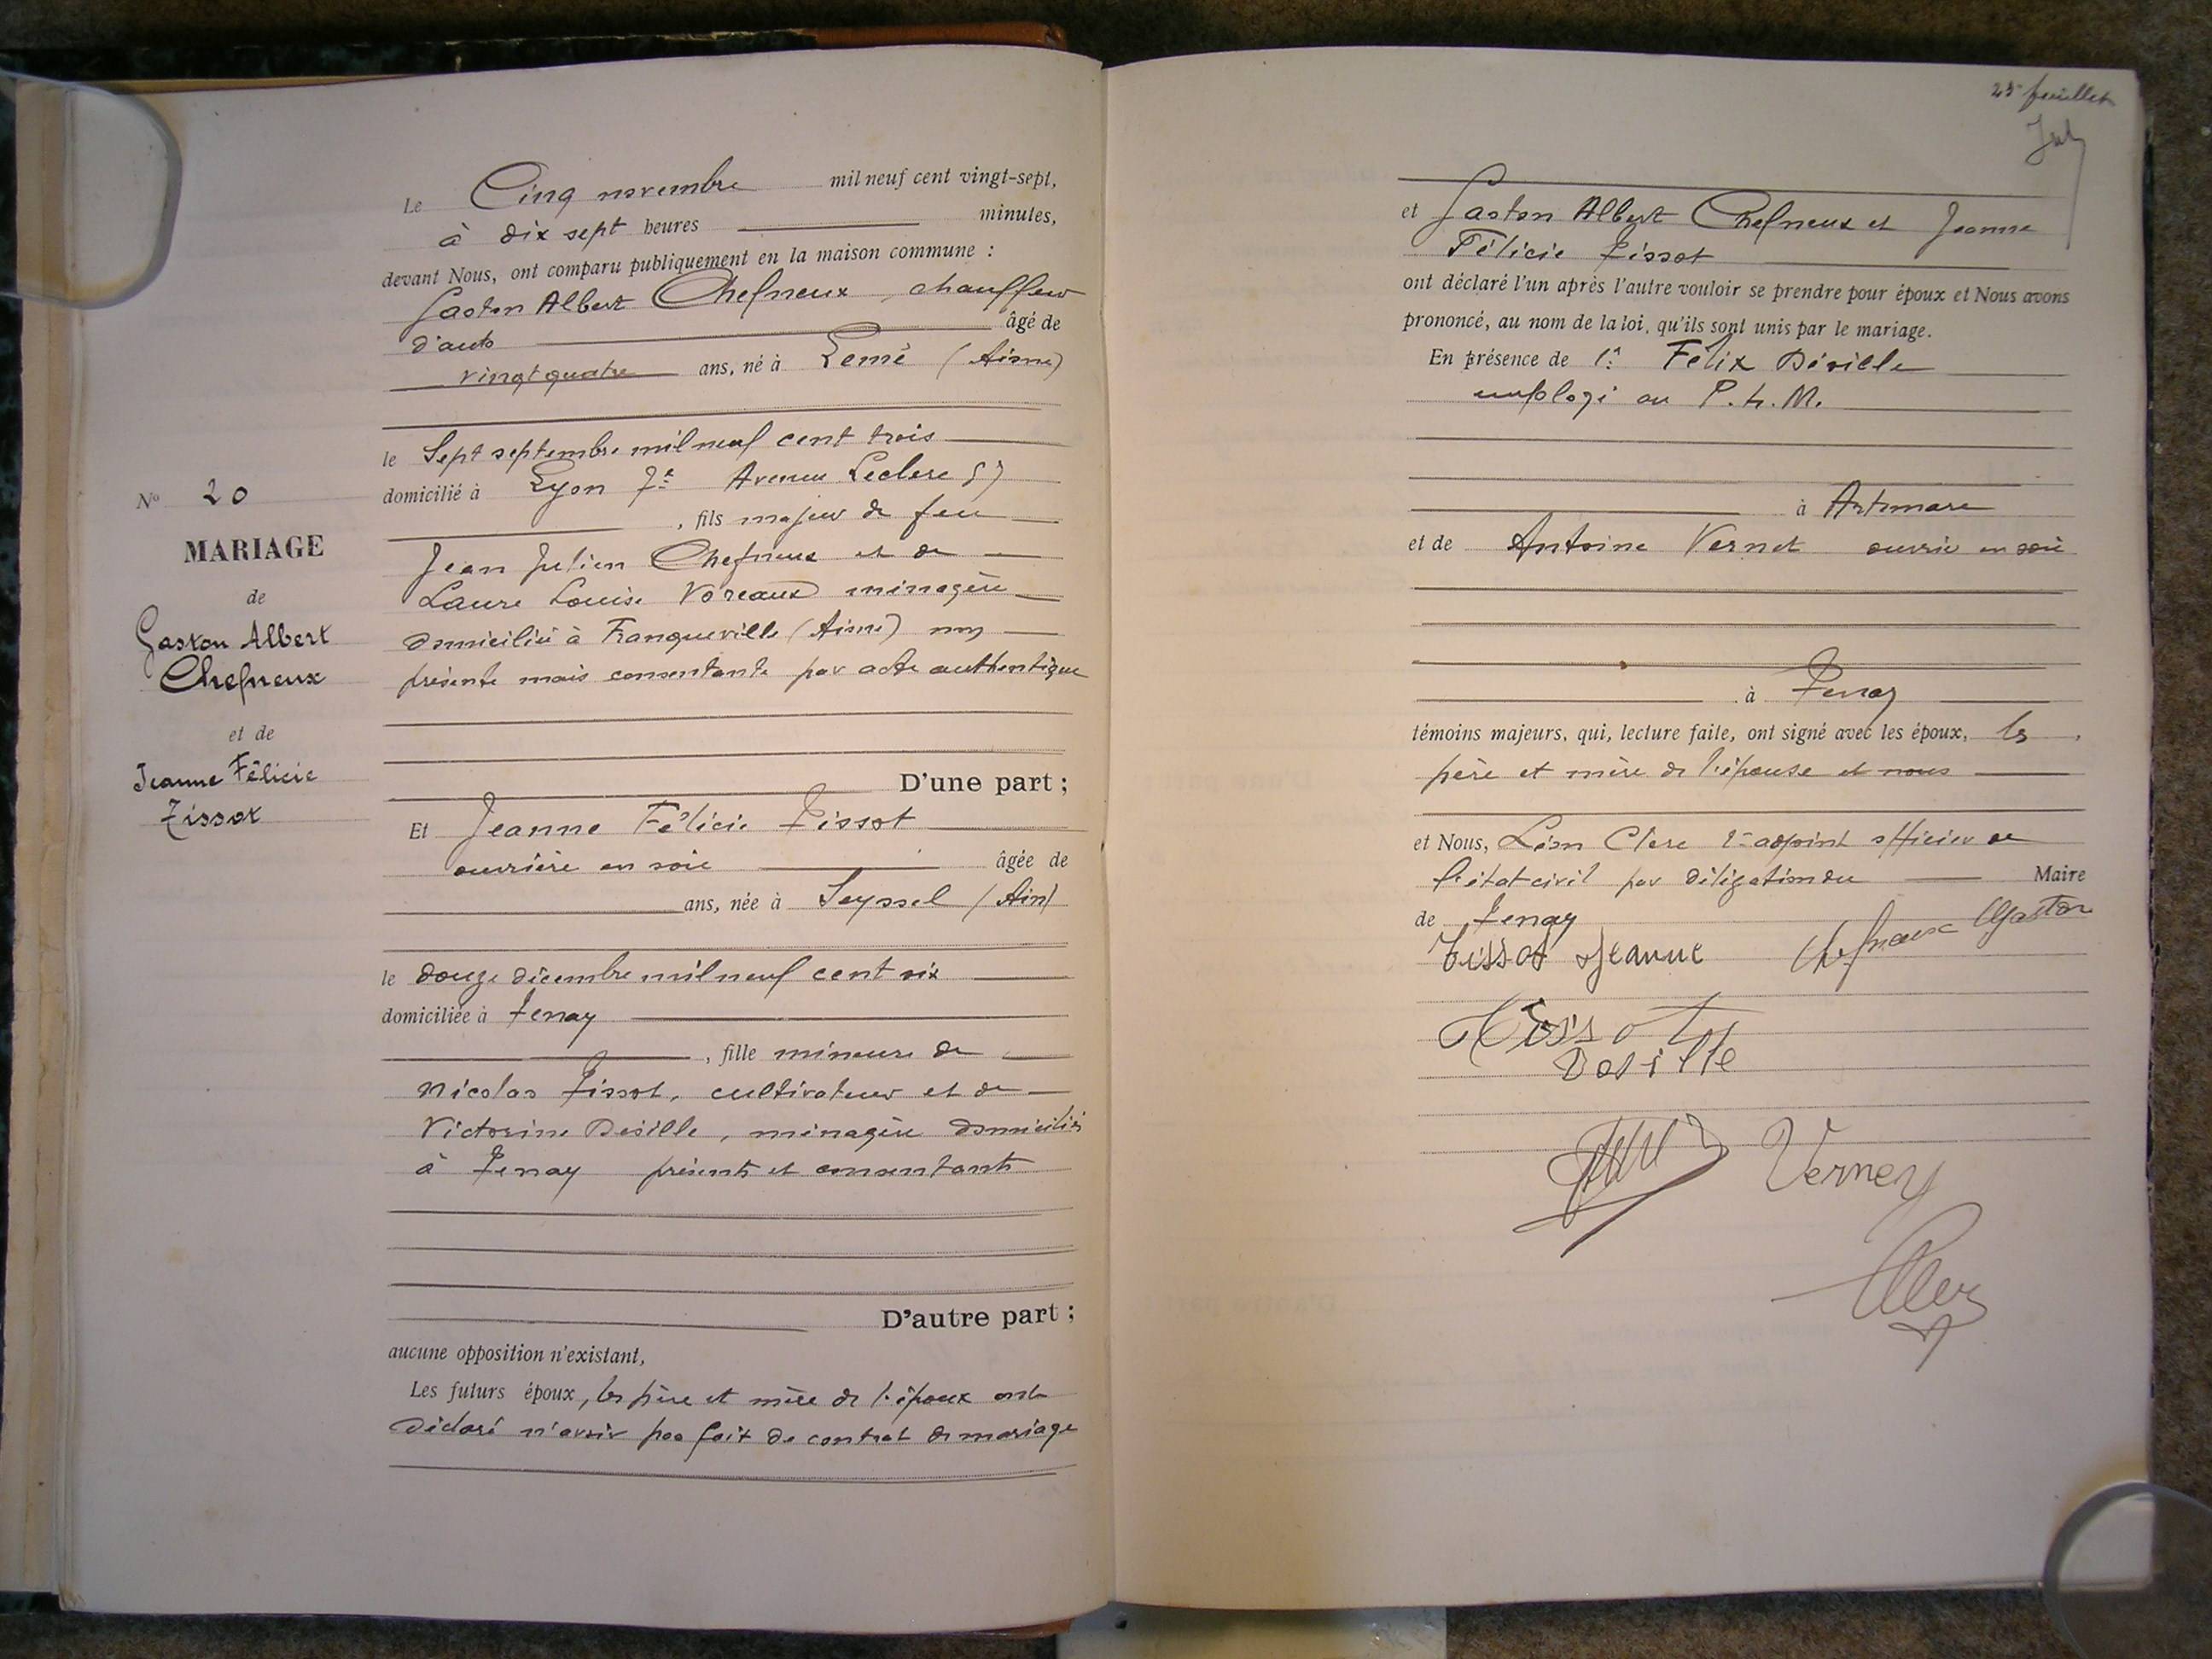 Le Cinq novembre mil neuf cent vingt-sept,
à dix sept heures minutes,
devant Nous, ont comparu publiquement en la maison commune :
Gaston Albert Chefneux, chauffeur
d'auto âgé de
vingt quatre ans, né à Lemé (Aisne)
le Sept septembre mil neuf cent trois
domicilié à Lyon 7e Avenue Leclerc 57
, fils majeur de feu
Jean Julien Chefneux et de
Laure Louise Voreaux ménagère
domiciliée à Franqueville (Aisne) non
présente mais consentante par acte authentique
D'une part ;
Nº 20
MARIAGE
de
Gaston Albert
Chefneux
et de
Jeanne Félicie
Tissot
Et Jeanne Félicie Tissot
ouvrière en soie âgée de
ans, née à Seyssel (Ain)
le douze décembre mil neuf cent six
domiciliée à Tenay
, fille mineure de
Nicolas Tissot, cultivateur et de
Victorine Déville, ménagère domiciliés
à Tenay présents et consentants
D'autre part ;
aucune opposition n'existant,
Les futurs époux, les père et mère de l'époux ont
déclaré n'avoir pas fait de contrat de mariage
25e feuillet
et Gaston Albert Chefneux et Jeanne
Félicie Tissot
ont déclaré l'un après l'autre vouloir se prendre pour époux et Nous avons
prononcé, au nom de la loi, qu'ils sont unis par le mariage.
En présence de 1º Félix Déville
employé au P.L.M.
à Artemare
et de Antoine Vernet ouvrier en soie
à Tenay
témoins majeurs, qui, lecture faite, ont signé avec les époux, les
père et mère de l'épouse et nous
et Nous, Léon Clerc 1er adjoint officier de
l'état civil par délégation du Maire
de Tenay
Tissot Jeanne Chefneux Gaston
Tissot
Deville
Verney